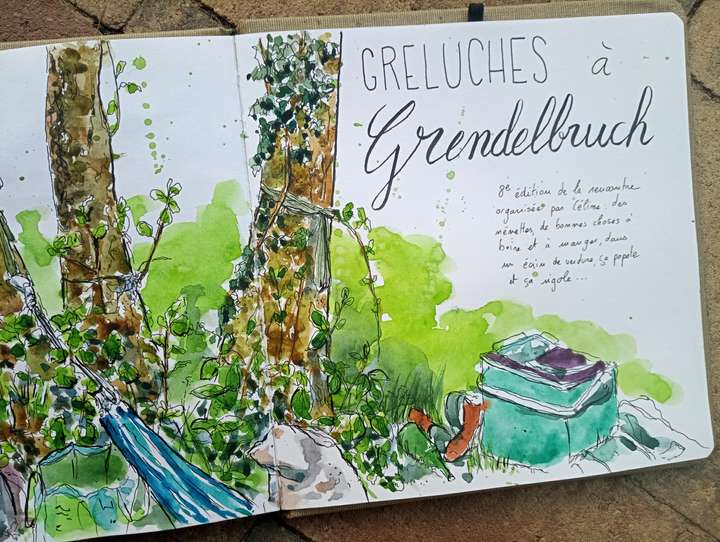 GRELUCHES à
Grendelbruch
8e édition de la rencontre
organisée par Céline: des
ménettes de bonnes choses à
boire et à manger, dans
un écrin de verdure, ça papote
et ça rigole...